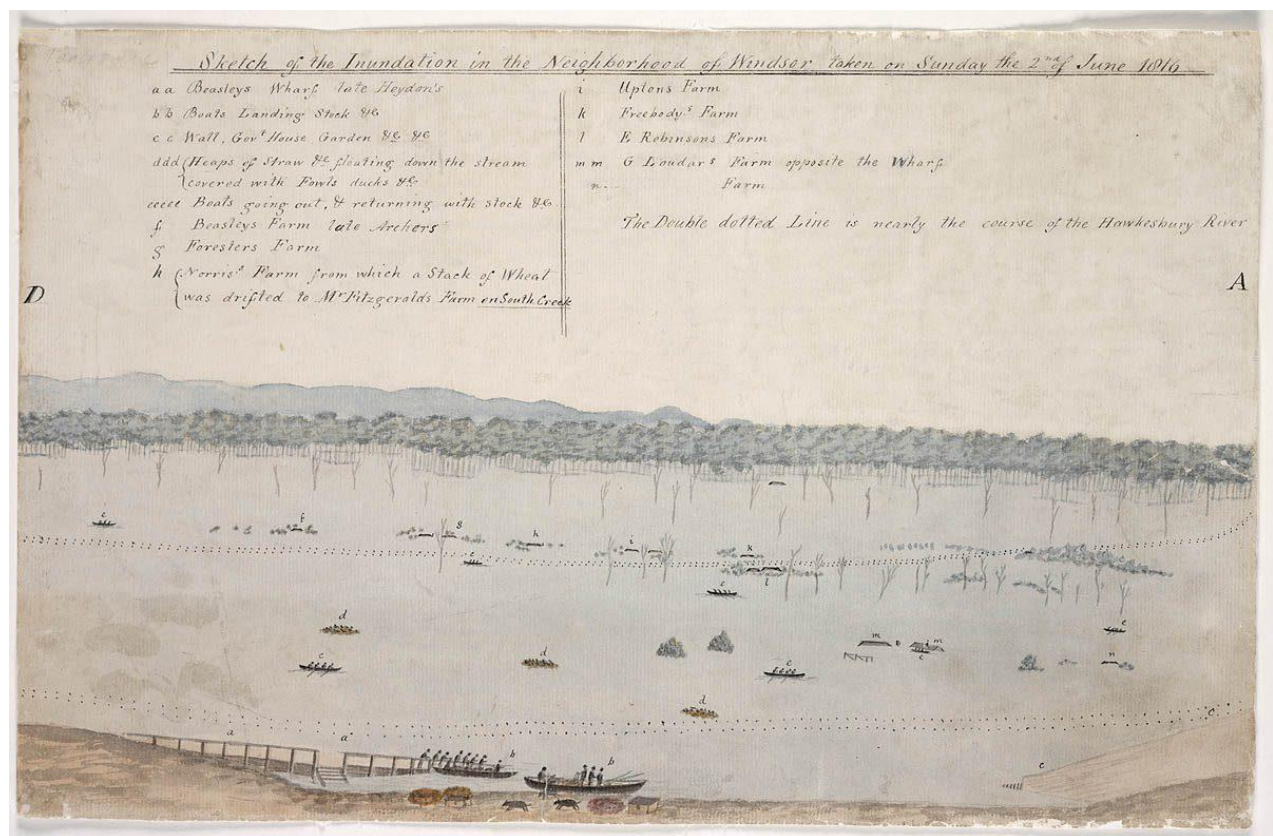 Sketch of the Inundation in the Neighborhood of Windsor taken on Sunday the 2nd of June 1816
a a Beasleys Wharf late Heydon's
b b Boats Landing Stock &c
c c Wall, Govt House Garden &c &c
ddd Heaps of Straw &c floating down the stream
covered with Fowls ducks &c
eeeee Boats going out, & returning with stock &c
f Beasleys Farm late Archers
g Foresters Farm
h Norris's Farm from which a Stack of Wheat
was drifted to Mr Fitzgeralds Farm on South Creek
i Uptons Farm
k Freebody's Farm
l E Robinsons Farm
m m G Loudars Farm opposite the Wharf
n Farm
The Double dotted Line is nearly the course of the Hawkesbury River
D
A
e
f
g
h
i
k
e
l
e
d
e
d
e
m
m
e
e
n
d
a
a
b
b
c
c